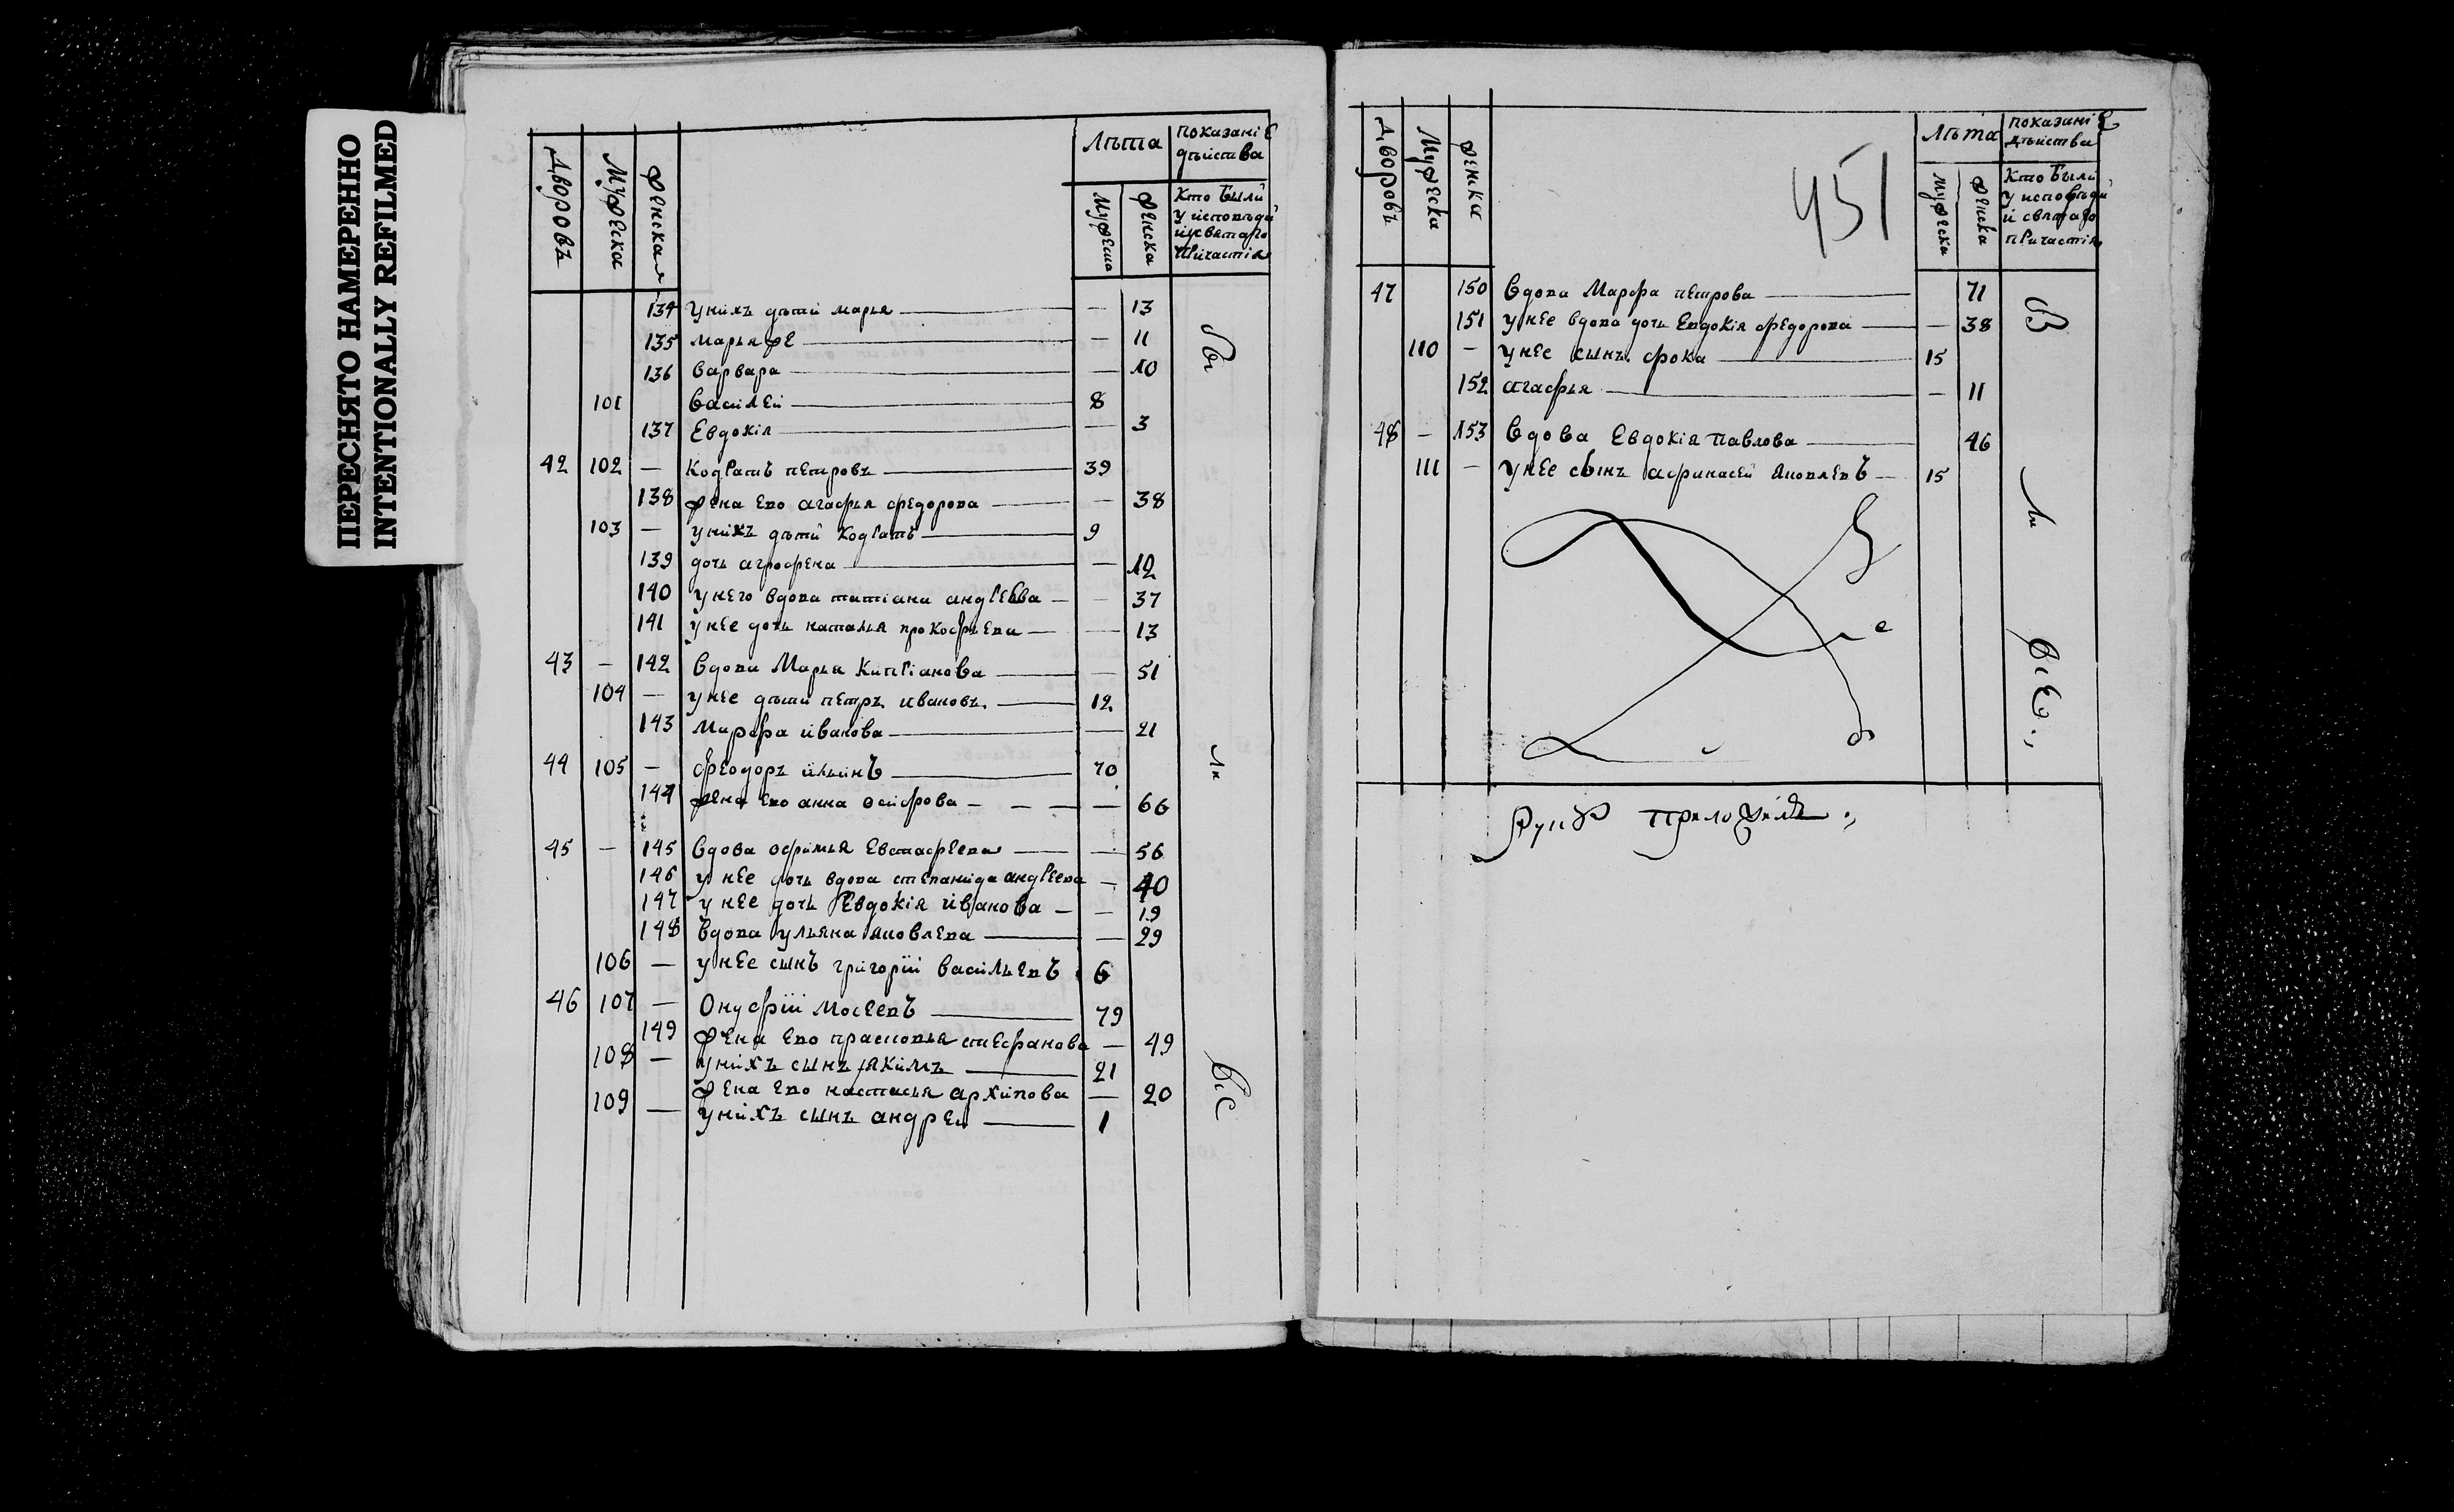 ПЕРЕСНЯТО НАМЕРЕННО
INTENTIONALLY REFILMED
Дворовъ Мужеска Женская Лѣта показаніе дѣиства
Мужеска Женска Кто были у исповѣди и святаго причастія
134 У нихъ дѣти марья — 13
135 марья же — 11
136 варвара — 10
101 василей 8
137 Евдокія — 3
42 102 — кодратъ петровъ 39
138 жена ево агафья федорова — 38
103 — у нихъ дѣти кодратъ 9
139 дочь агрофена — 12
140 у него вдова татіана андреева — 37
141 у нее дочь наталья прокофьева — 13
43 — 142 вдова Марья Кипріанова — 51
104 — у нее дѣти петръ ивановъ 12
143 Марфа иванова — 21
44 105 — феодоръ ильинъ 70
144 жена ево анна осипова — 66
45 — 145 вдова офимья Евстафеева — 56
146 у нее дочь вдова степанида андреева — 40
147 у нее дочь Евдокія иванова — 19
148 вдова ульяна яковлева — 29
106 — у нее сынъ григорій васильевъ 6
46 107 — Онуфрій Мосеевъ 79
149 жена ево прасковья стефанова — 49
108 — у нихъ сынъ якимъ 21
жена ево настасья архипова — 20
109 — у нихъ сынъ андрей 1
451
Дворовъ Мужеска Женска Лѣта показаніе дѣиства
Мужеска Женска Кто были у исповѣди и святаго причастія
47 150 вдова Марфа петрова 71
151 у нее вдова дочь Евдокія федорова — 38
110 — у нее сынъ фока 15
152 агафья — 11
48 — 153 вдова Евдокія павлова 46
111 — у нее сынъ афанасей яковлевъ 15
Руку приложилъ